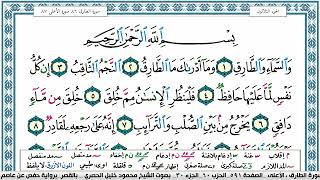 الجزء الثلاثون سورة الطارق ٨٦ سورة الأعلى ٨٧
بِسْمِ ٱللَّهِ ٱلرَّحْمَٰنِ ٱلرَّحِيمِ
وَٱلسَّمَآءِ وَٱلطَّارِقِ ١ وَمَآ أَدْرَىٰكَ مَا ٱلطَّارِقُ ٢ ٱلنَّجْمُ ٱلثَّاقِبُ ٣ إِن كُلُّ
نَفْسٍ لَّمَّا عَلَيْهَا حَافِظٌ ٤ فَلْيَنظُرِ ٱلْإِنسَٰنُ مِمَّ خُلِقَ ٥ خُلِقَ مِن مَّآءٍ
دَافِقٍ ٦ يَخْرُجُ مِنۢ بَيْنِ ٱلصُّلْبِ وَٱلتَّرَآئِبِ ٧ إِنَّهُۥ عَلَىٰ رَجْعِهِۦ لَقَادِرٌ ٨
سورة الطارق، الأعلى، الصفحة ٥٩١ الحزب ٦٠ الجزء ٣٠ بصوت الشيخ محمود خليل الحصري بالقصر برواية حفص عن عاصم